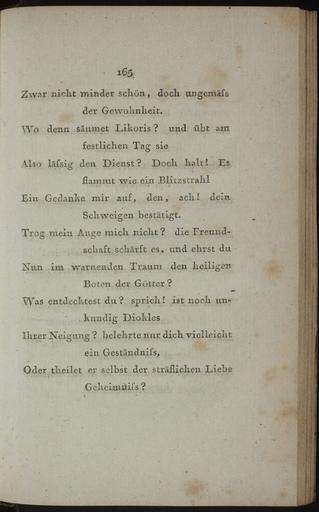 165
Zwar nicht minder schön, doch ungemäſs
der Gewohnheit.
Wo denn säumet Likoris? und übt am
festlichen Tag sie
Also läſsig den Dienst? Doch halt! Es
flammt wie ein Blitzstrahl
Ein Gedanke mir auf, den, ach! dein
Schweigen bestätigt.
Trog mein Auge mich nicht? die Freund-
schaft schärft es, und ehrst du
Nun im warnenden Traum den heiligen
Boten der Götter?
Was entdecktest du? sprich! ist noch un-
kundig Diokles
Ihrer Neigung? belehrte nur dich vielleicht
ein Geständniſs,
Oder theilet er selbst der sträflichen Liebe
Geheimniſs?